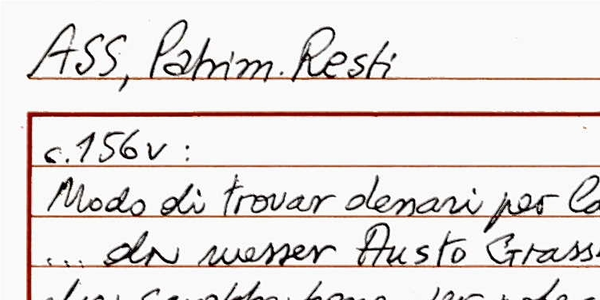 ASS, Patrim. Resti
c. 156v :
Modo di trovar denari per
... messer Austo Grass